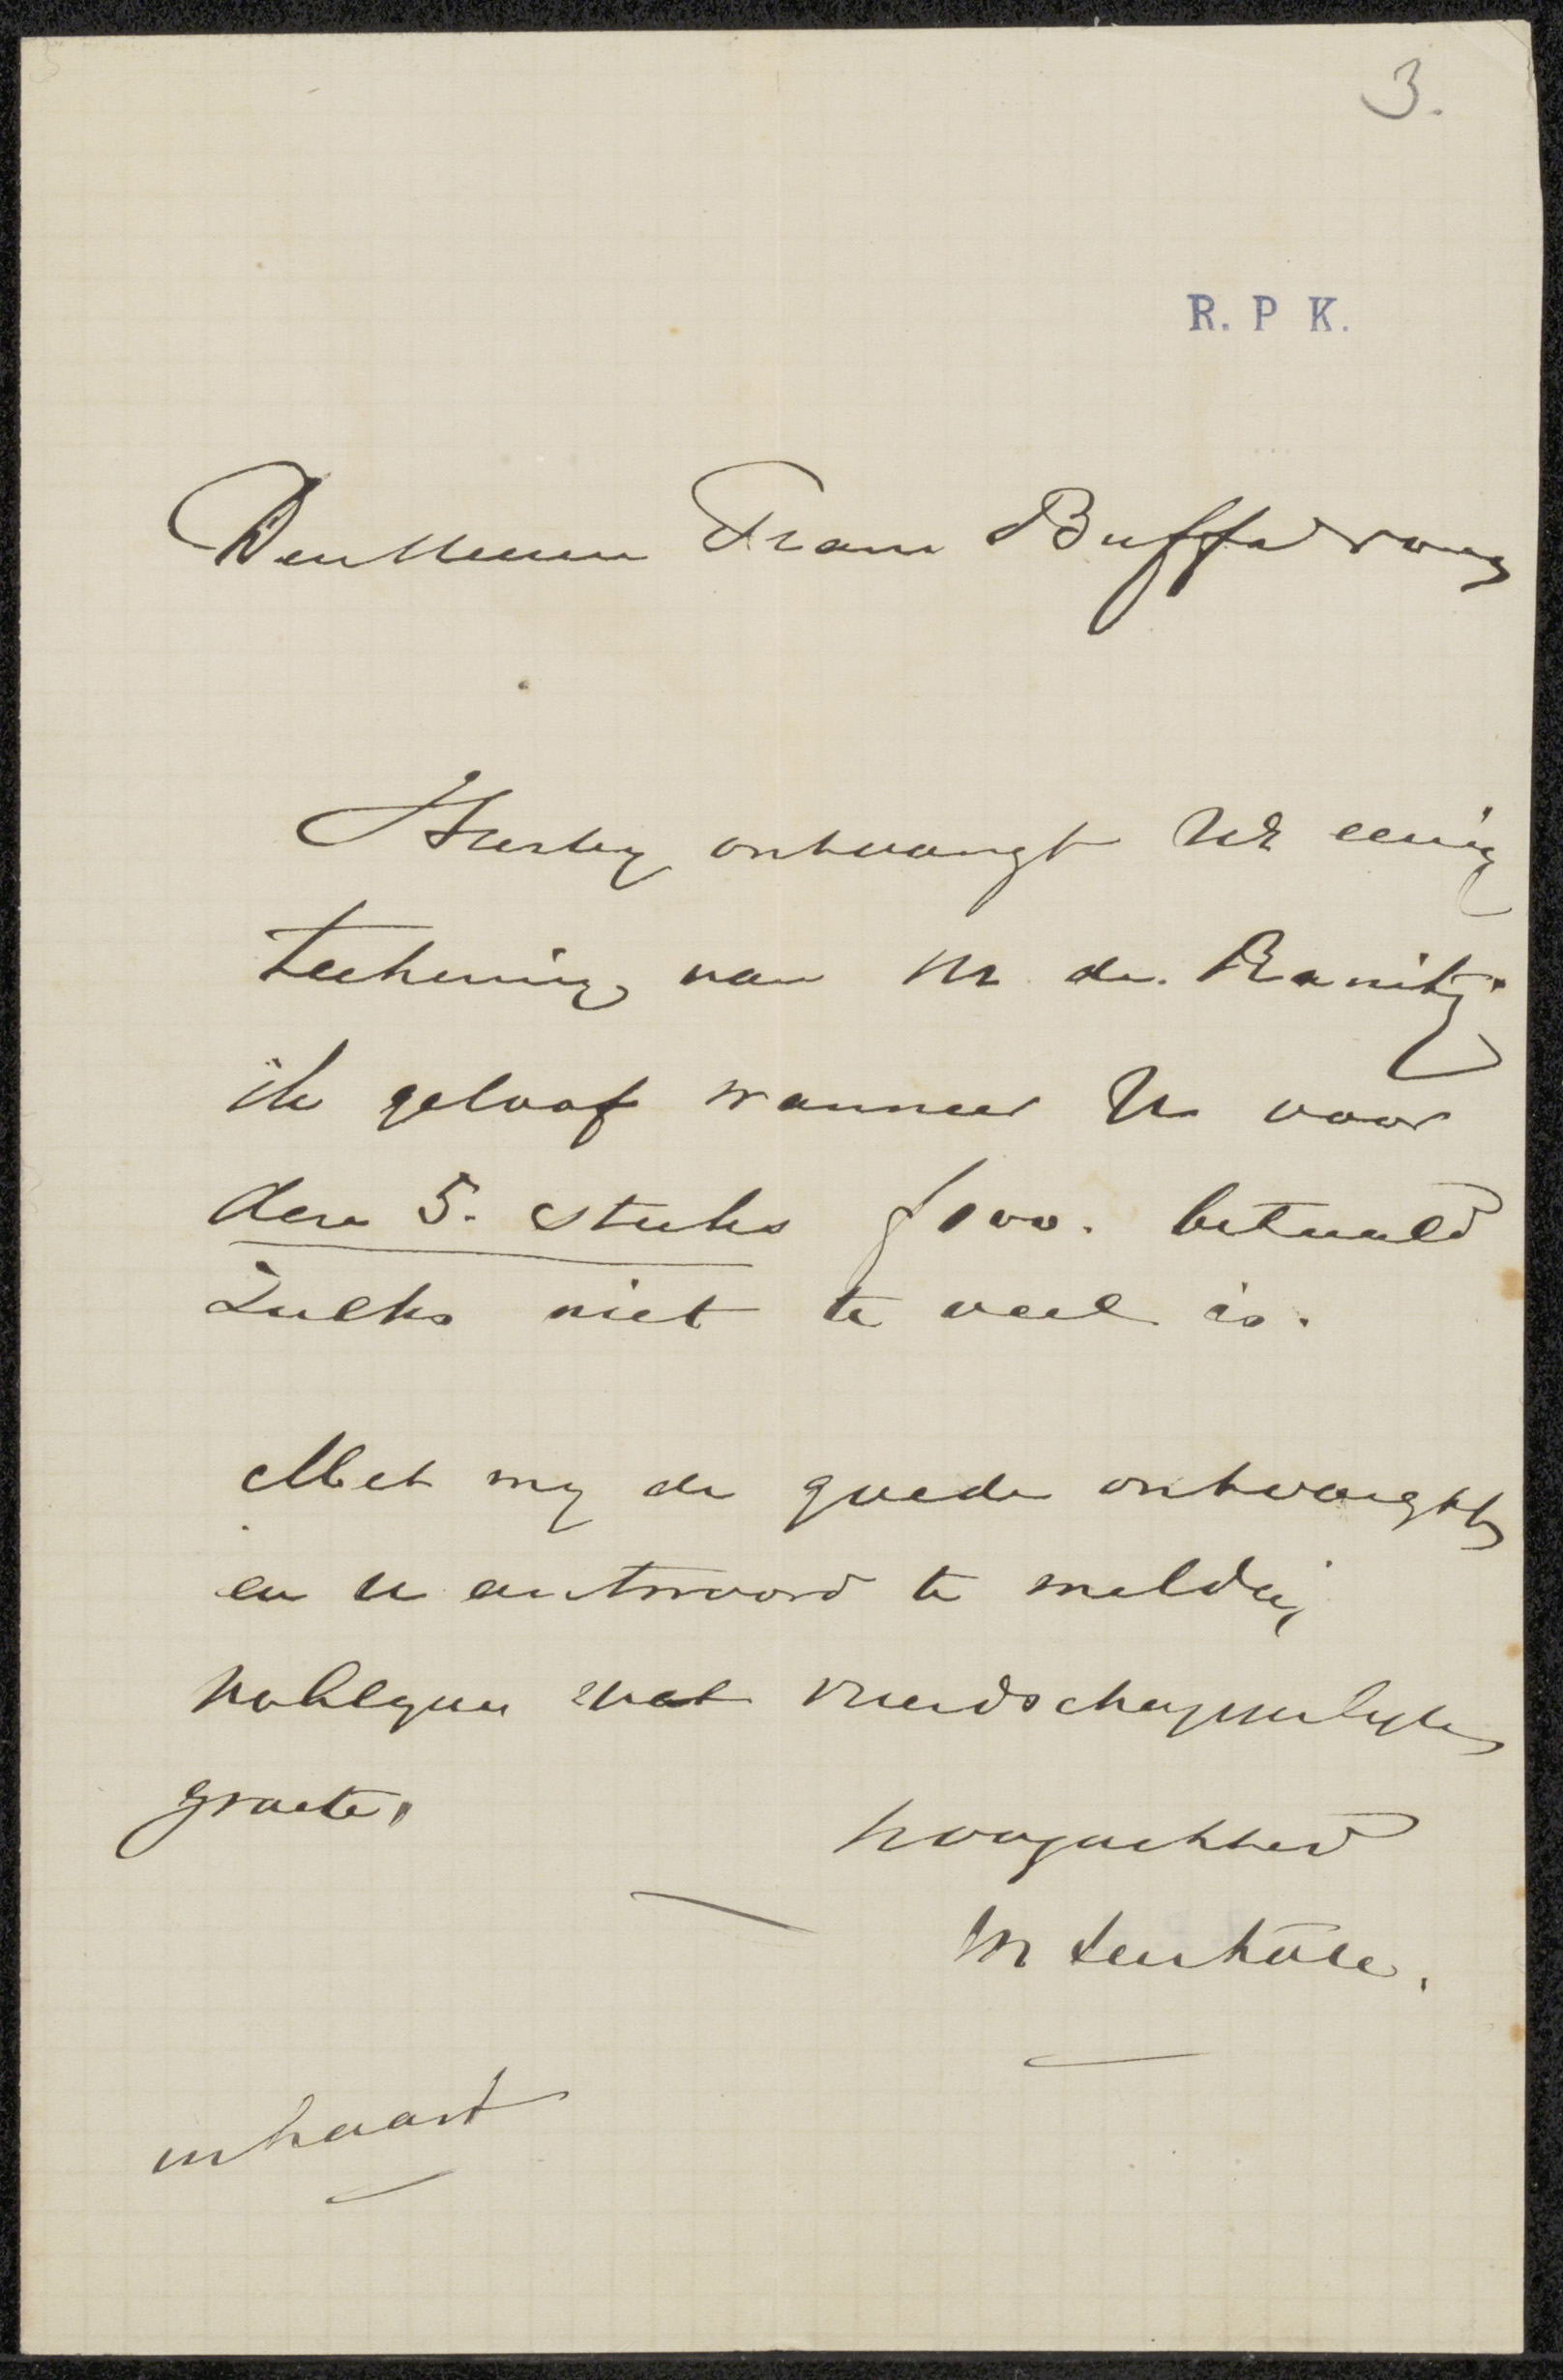 3.
R. P K.
Den Heeren Frans Buffa
Hierby ontvangt UE eenig
teekening van M de
ik geloof wanneer U voor
deze 5. stuks f100. betaald
zulks niet te veel is.
Met my de goede ontvangst
en u antwoord te melden,
noblezeer met vriendschappelyke
groete,
hoogachtend
M
inhaast